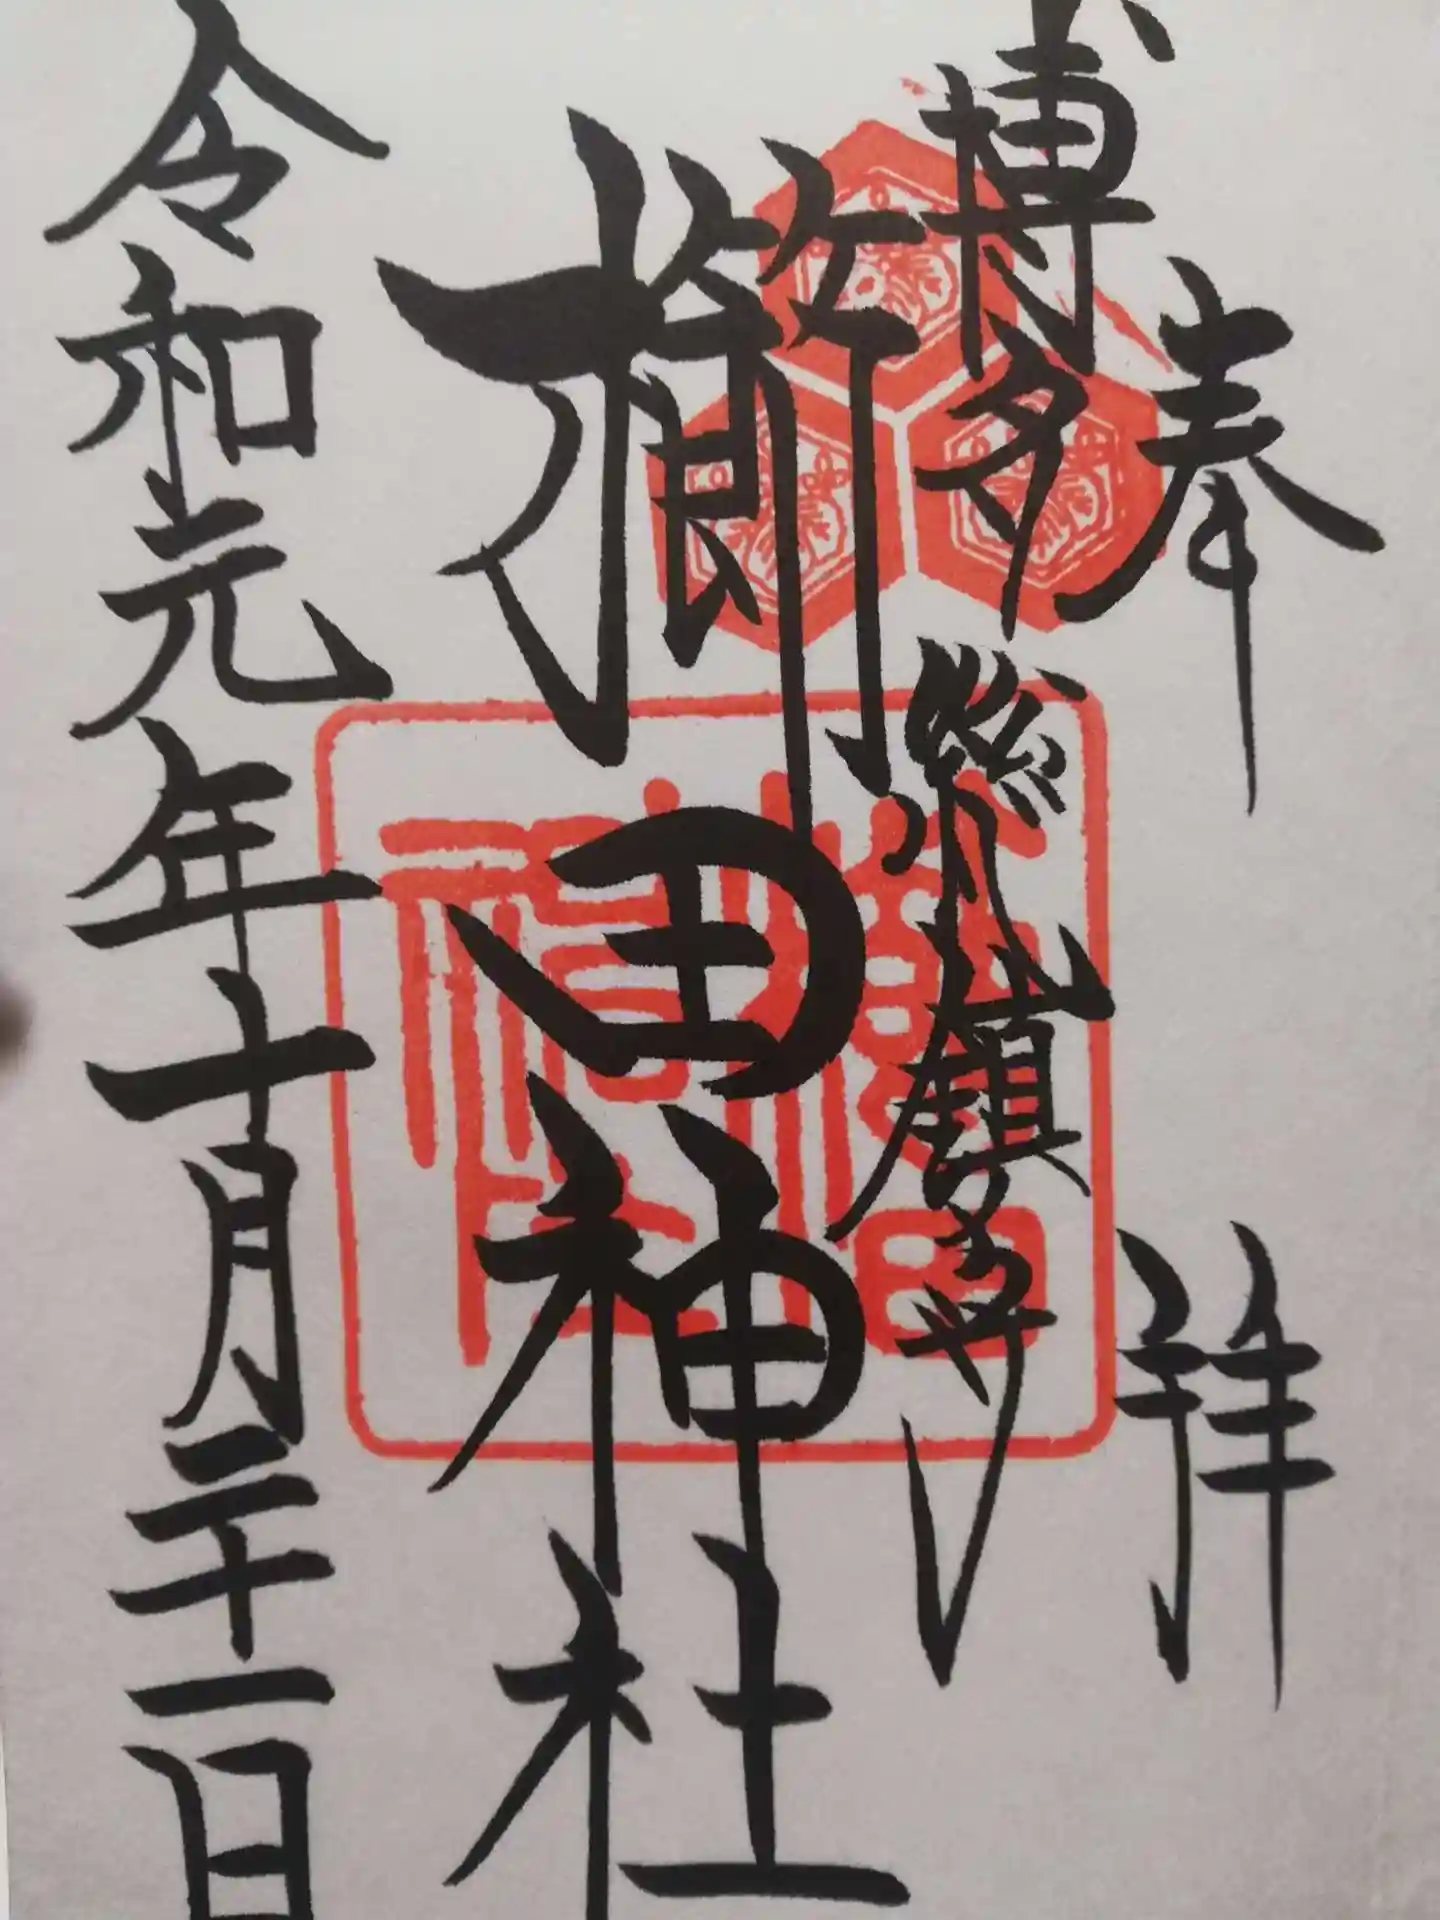 奉拝
博多総鎮守
櫛田神社
令和元年十月二十一日
櫛田
神社